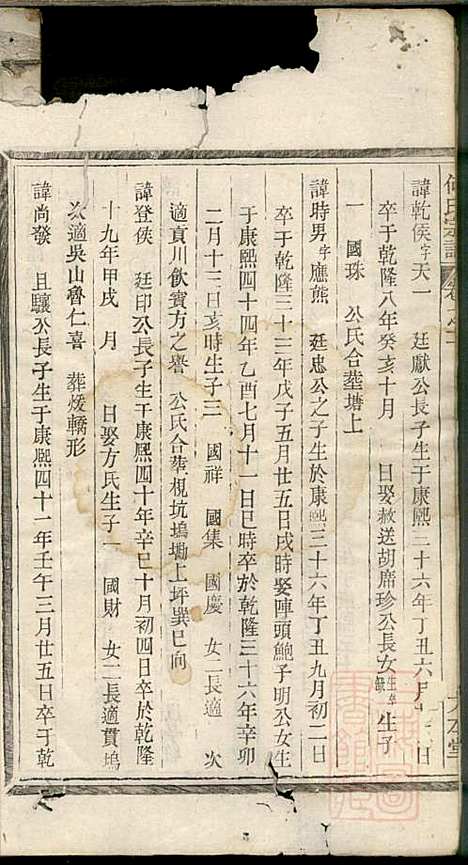 何氏宗譜
諱乾侯字天一 廷獻公長子生于康熙三十六年丁丑六月 日
卒于乾隆八年癸亥十月 日娶赦送胡席珍公長女生卒缺生子
一 國珠 公氏合塟塘上
諱時男字應熊 廷忠公之子生於康熙三十六年丁丑九月初二日
卒于乾隆三十三年戊子五月廿五日戌時娶陣頭鮑子明公女生
于康熙四十四年乙酉七月十一日巳時卒於乾隆三十六年辛卯
二月十三日亥時生子三 國祥 國集 國慶 女二長適 次
適貢川飲賓方之譽 公氏合葬梘坑塢塝上坪巽巳向
諱登侯 廷印公長子生于康熙四十年辛巳十月初四日卒於乾隆
十九年甲戌 月 日娶方氏生子一 國財 女二長適貫塢
次適吳山魯仁喜 葬煖轎形
諱尚發 且驤公長子生于康熙四十一年壬午三月廿五日卒于乾